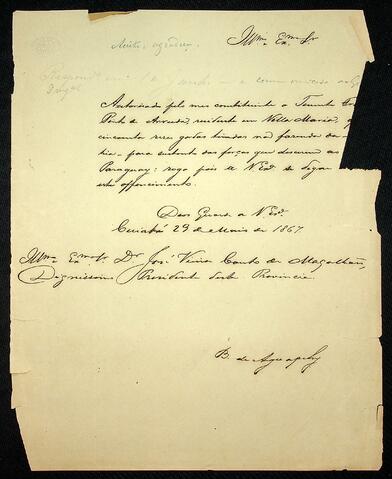 Aceito, agradeça.
Illmo. e Exmo. Sr.
Respond em 1o de Junho
Autorisado pelo meu constituinte o Tenente Cor
Pinto de Arruda, residente em Villa Maria,
cincoenta rezes gordas tiradas na fazenda da
hia para sustento das forças que descerem ao
Paraguay: rogo pois a V. Exa. se digne
este offerecimento.
Deos Guarde a V. Exa.
Cuiabá 29 de Maio de 1867.
Illmo. e Exmo. Sr. Dr. José Vieira Couto de Magalhães,
Dignissimo Presidente desta Provincia.
B. de Aguapehy